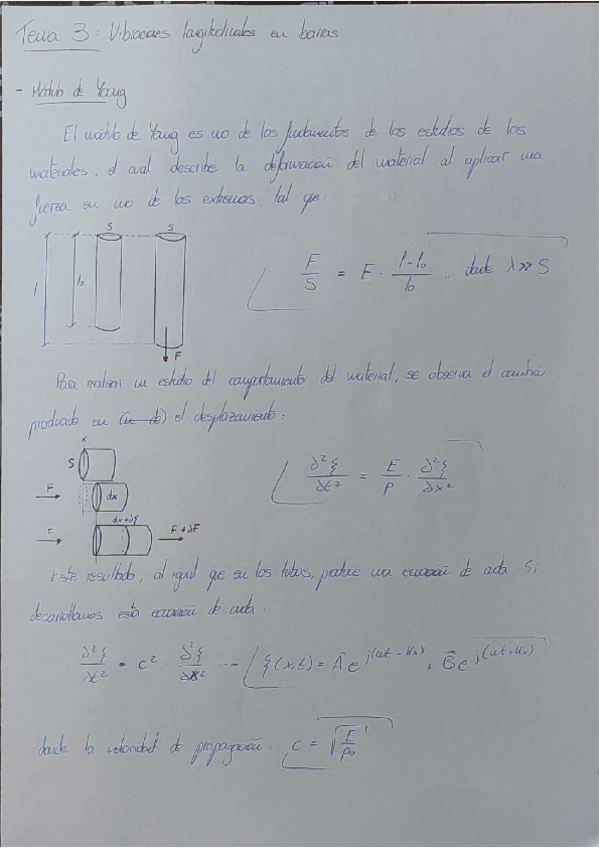 Tema 3: Vibraciones longitudinales en barras
- Módulo de Young
El módulo de Young es uno de los fundamentos de los estudios de los
materiales, el cual describe la deformación del material al aplicar una
fuerza en uno de los extremos, tal que:
S S
l l₀ F
F/S = E · (l - l₀)/l₀ , donde λ >> S
Para realizar un estudio del comportamiento del material, se observa el cambio
producido en el desplazamiento:
x
S
F dx
dx+∂ξ
F F+∂F
∂²ξ/∂t² = E/ρ · ∂²ξ/∂x²
Este resultado, al igual que en los tubos, produce una ecuación de onda. Si
desarrollamos esta ecuación de onda:
∂²ξ/∂t² = c² · ∂²ξ/∂x² -- ξ(x,t) = Ã e^j(ωt - kx) + B̃ e^j(ωt + kx)
donde la velocidad de propagación: c = √(E/ρ₀)